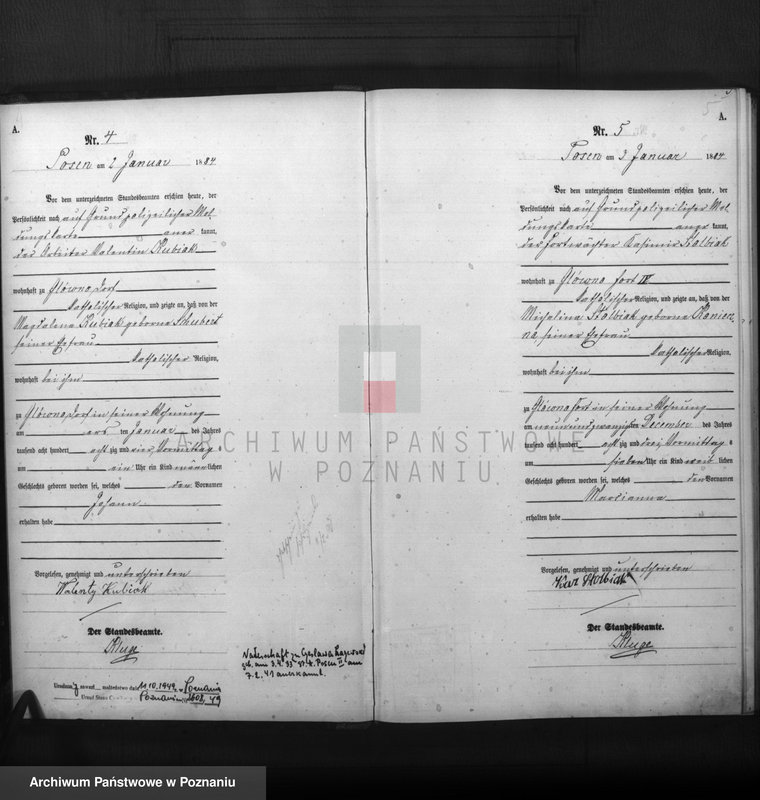 A.
Nr. 4
Posen am 2 Januar 1884
Vor dem unterzeichneten Standesbeamten erschien heute, der
Persönlichkeit nach auf Grund polizeilicher Mel
dungskarte anerkannt,
der Arbeiter Valentin Kubiak
wohnhaft zu Glówno, Dorf
katholischer Religion, und zeigte an, daß von der
Magdalena Kubiak geborne Schubert
seiner Ehefrau
katholischer Religion,
wohnhaft bei ihm
zu Glówno, Dorf in seiner Wohnung
am ersten Januar des Jahres
tausend acht hundert achtzig und vier Vormittag s
um ein Uhr ein Kind männlichen
Geschlechts geboren worden sei, welches den Vornamen
Johann
erhalten habe
Vorgelesen, genehmigt und unterschrieben
Walenty Kubiak
Der Standesbeamte.
Kluge
Posnania
Vaterschaft zu
7.2.41 anerkannt.
A.
5
Nr. 5
Posen am 3 Januar 1884
Vor dem unterzeichneten Standesbeamten erschien heute, der
Persönlichkeit nach auf Grund polizeilicher Mel
dungskarte anerkannt,
der Fortwächter Kasimir Stolbiak
wohnhaft zu Glówno Fort IV
katholischer Religion, und zeigte an, daß von der
Michalina Stolbiak geborne
seiner Ehefrau
katholischer Religion,
wohnhaft bei ihm
zu Glówno Fort in seiner Wohnung
am neunundzwanzigsten December des Jahres
tausend acht hundert achtzig und drei Vormittag s
um sieben Uhr ein Kind weiblichen
Geschlechts geboren worden sei, welches den Vornamen
Marianna
erhalten habe
Vorgelesen, genehmigt und unterschrieben
Kaz Stolbiak
Der Standesbeamte.
Kluge
ARCHIWUM PAŃSTWOWE
W POZNANIU
Archiwum Państwowe w Poznaniu